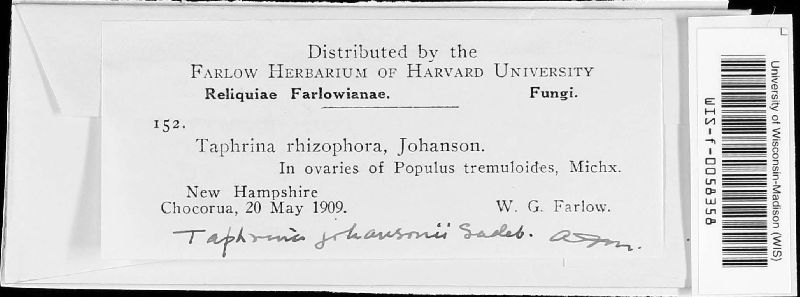 Distributed by the
FARLOW HERBARIUM OF HARVARD UNIVERSITY
Reliquiae Farlowianae. Fungi.
152.
Taphrina rhizophora, Johanson.
In ovaries of Populus tremuloides, Michx.
New Hampshire
Chocorua, 20 May 1909. W. G. Farlow.
Taphrina johansonii Sadeb.
University of Wisconsin-Madison (WIS)
WIS-f-0058358